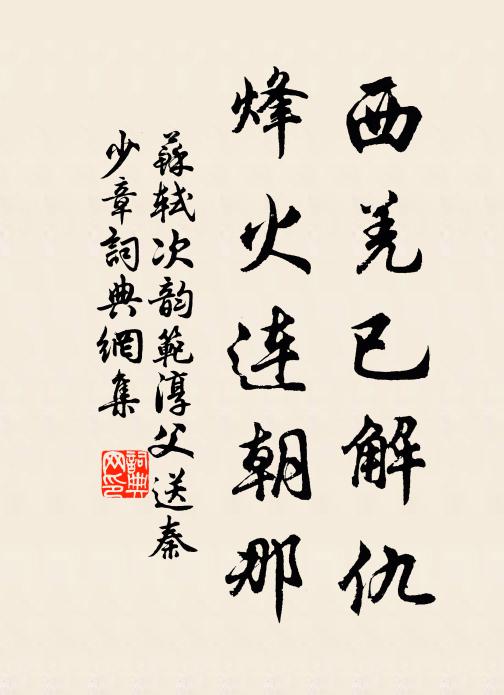 西羌已解仇
烽火连朝那
蘇軾次韵範淳父送秦
少章詞典網集
詞典
网印